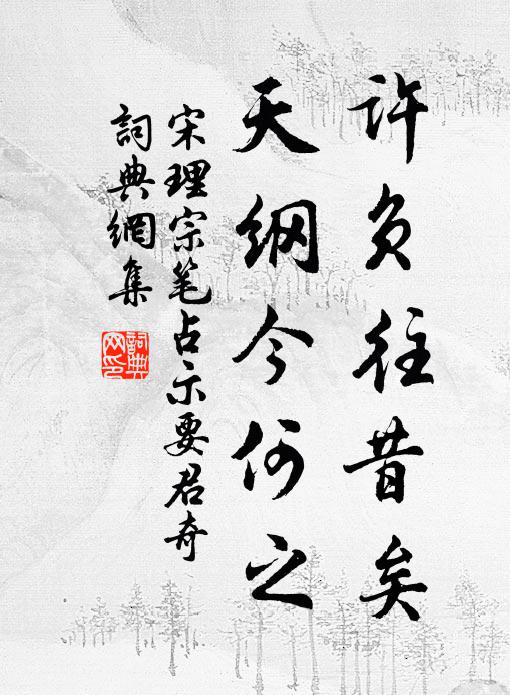 许负往昔矣
天纲今何之
宋理宗笔占示要君奇
詞典網集
詞典網印